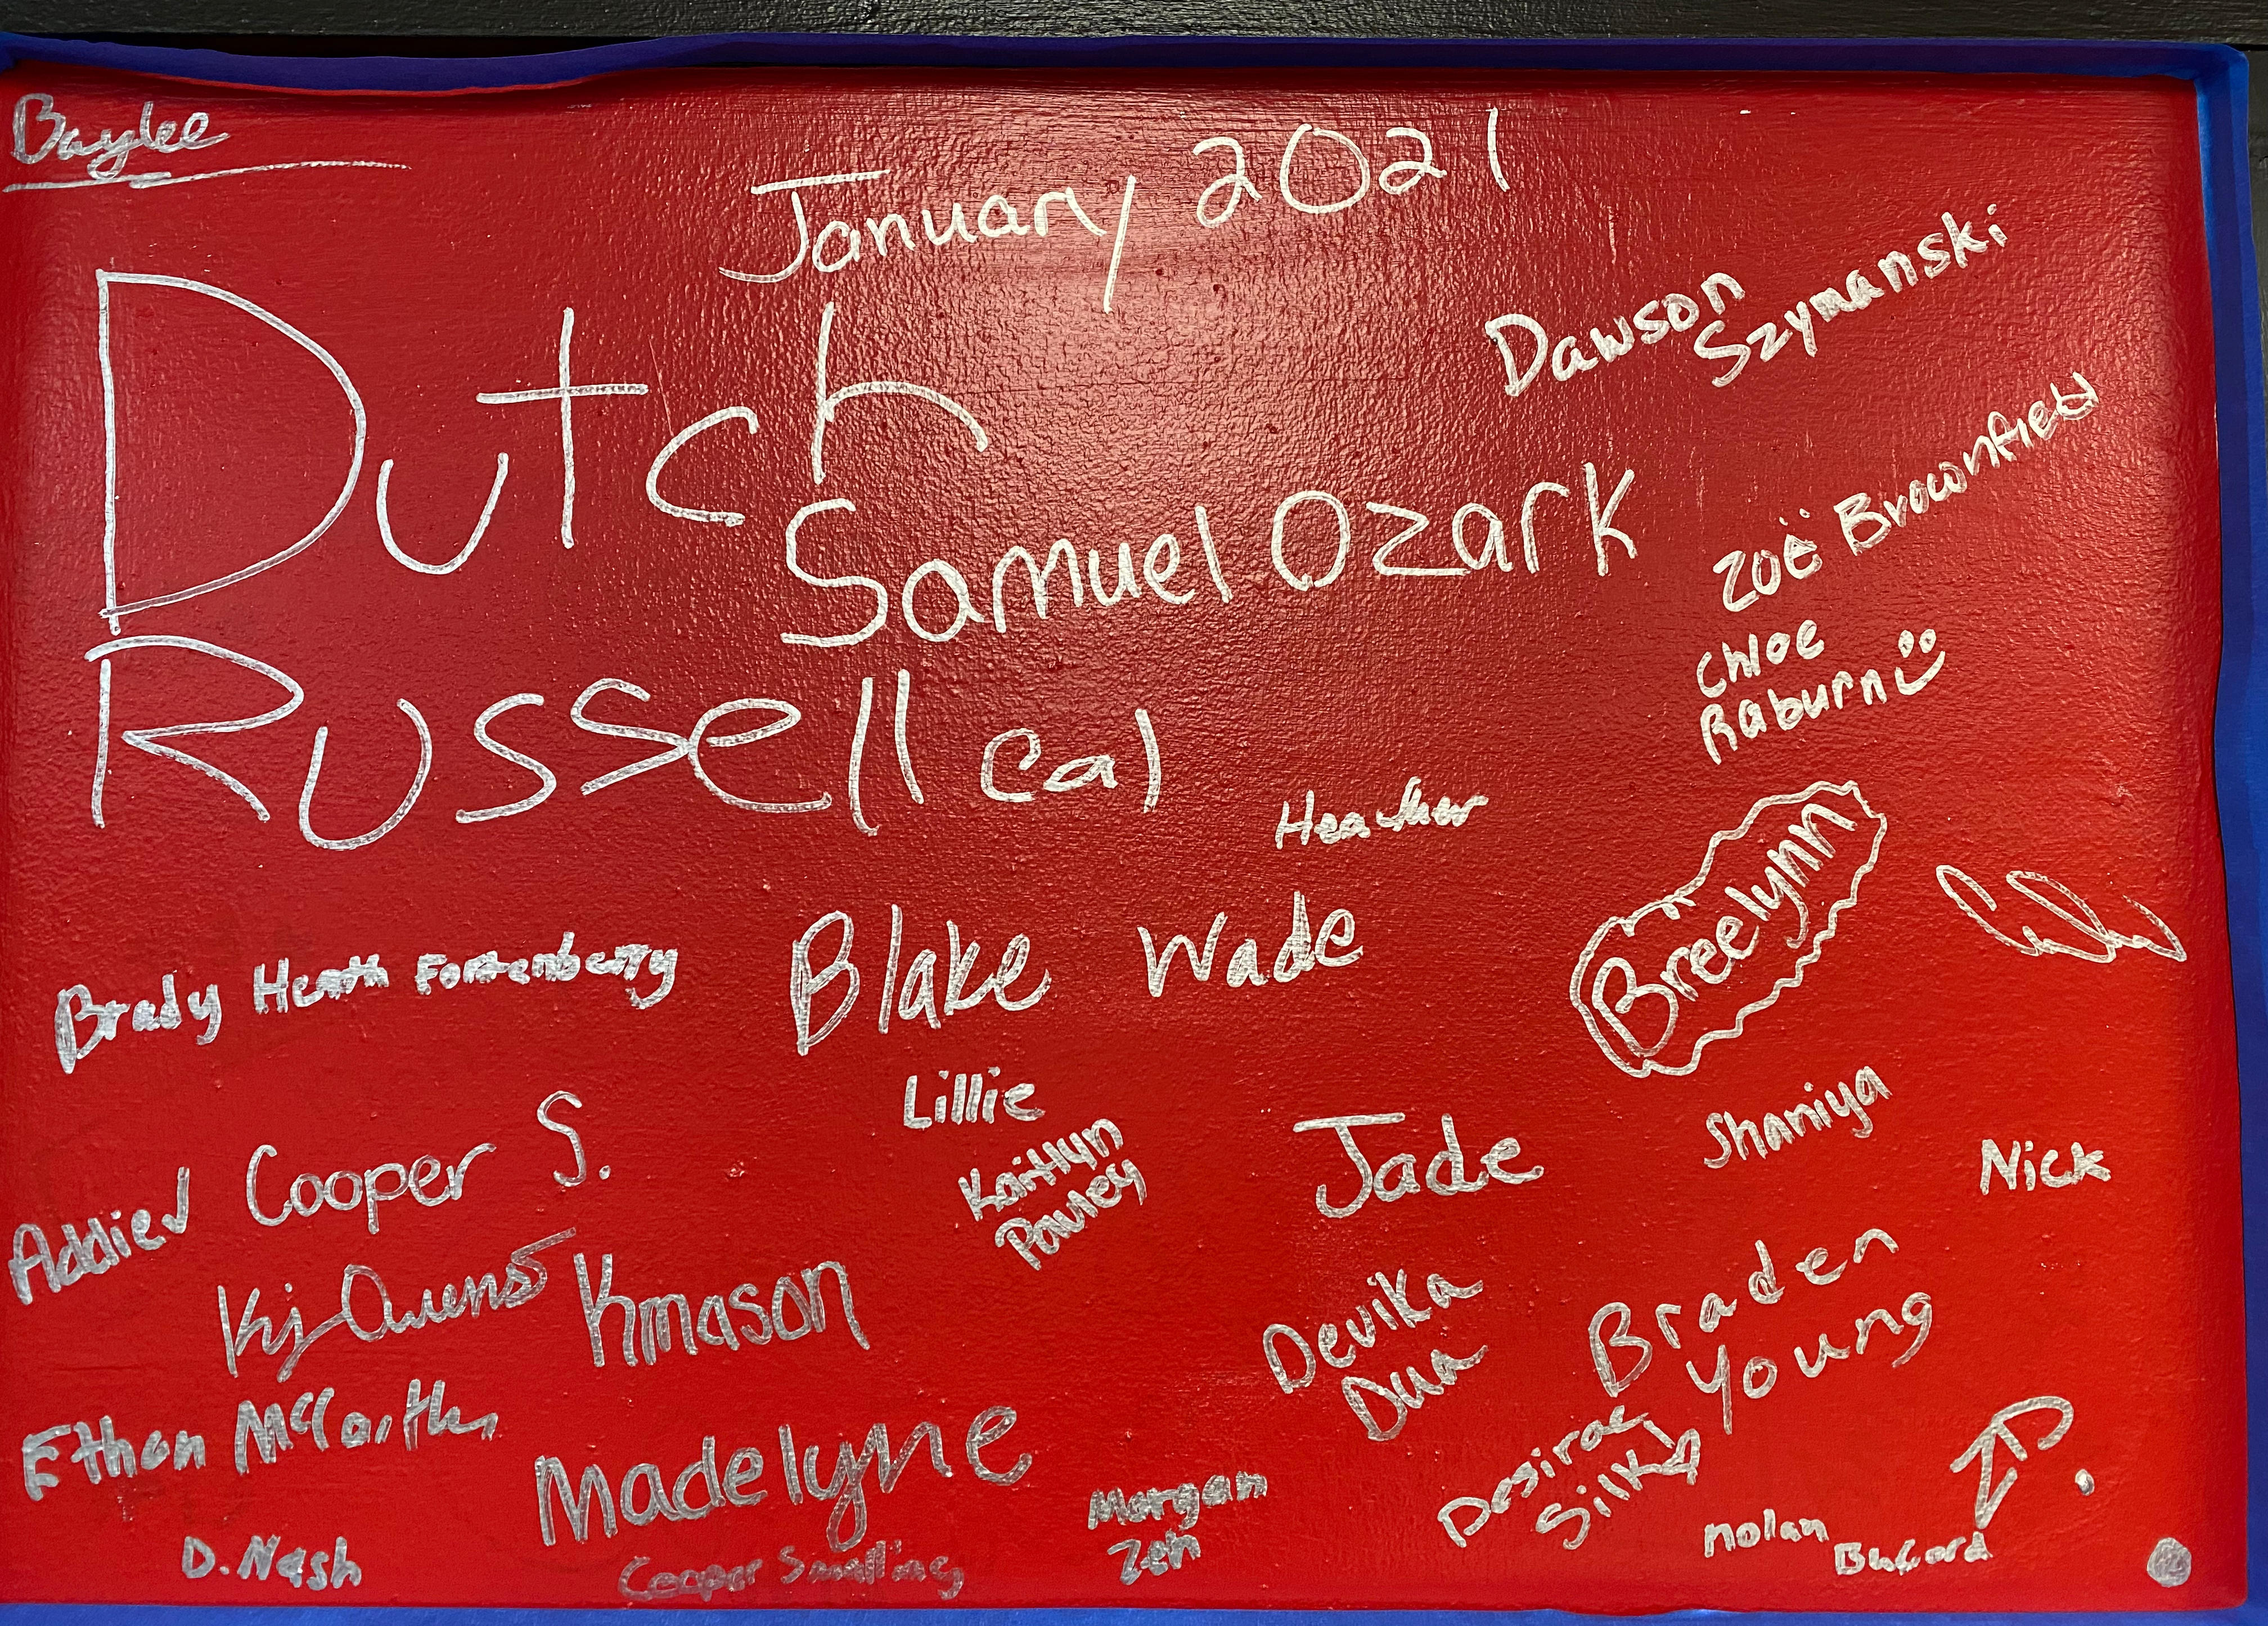 Baylee
January 2021
Dutch
Dawson
Szymanski
Samuel Ozark
Zoë Brownfield
Chloe
Raburn
Russell
Cal
Heather
Breelynn
Brady Heath Fortenberry
Blake Wade
Lillie
Kaitlyn
Pauley
Jade
Shaniya
Nick
Cooper S.
KJ Owens
Kmason
Devika
Dua
Braden
Young
Ethan McCarthy
Madelyne
Desirae
Silk
Morgan
Zeh
D. Nash
Cooper Smalling
Nolan